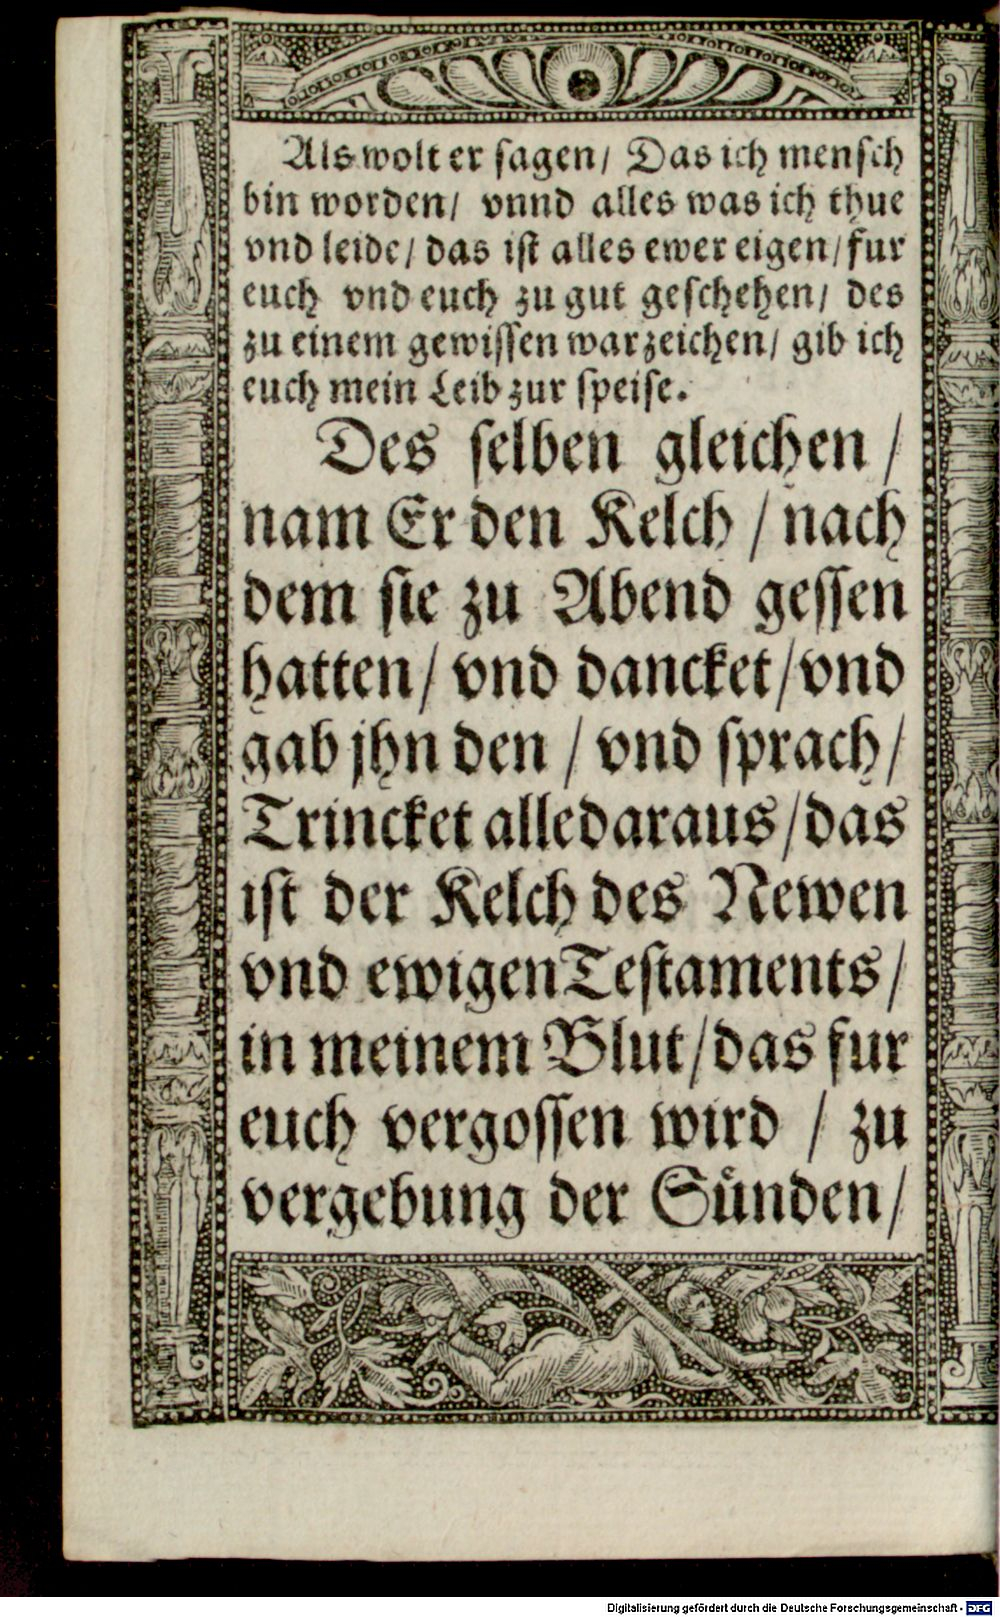 Als wolt er sagen/ Das ich mensch
bin worden/ vnnd alles was ich thue
vnd leide/ das ist alles ewer eigen/ fur
euch vnd euch zu gut geschehen/ des
zu einem gewissen warzeichen/ gib ich
euch mein Leib zur speise.
Des selben gleichen /
nam Er den Kelch / nach
dem sie zu Abend gessen
hatten/ vnd dancket/ vnd
gab jhn den / vnd sprach/
Trincket alle daraus/ das
ist der Kelch des Newen
vnd ewigen Testaments/
in meinem Blut/ das fur
euch vergossen wird / zu
vergebung der Sünden/
Digitalisierung gefördert durch die Deutsche Forschungsgemeinschaft - DFG